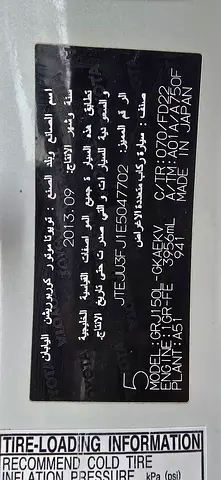 اسم الصانع وبلد الصنع : تويوتا موتور كوربوريشن اليابان
سنة وشهر الانتاج: 2013.09
تطابق هذه السيارة جميع المواصفات القياسية الخليجية
والسعودية للسيارات والتي صدرت حتى تاريخ الانتاج.
الرقم المميز: JTEJU3FJ1E5047702
صنف: سيارة ركاب متعددة الاغراض
5
MODEL:GRJ150L-GKAEKV C/TR:070/FD22
ENGINE:1GR-FE 3956mL A/TM:A01A/A750F
PLANT:A51 941 MADE IN JAPAN
TIRE-LOADING INFORMATION
RECOMMEND COLD TIRE
INFLATION PRESSURE kPa (psi)